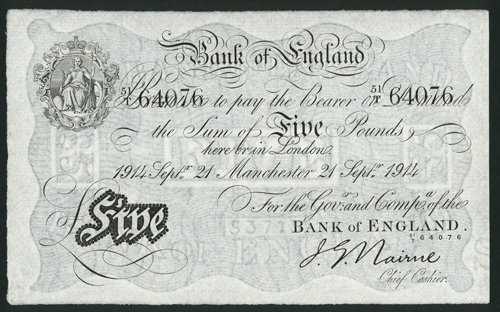 Bank of England
51/X 64076 Promise to pay the Bearer on Demand 51/X 64076
the Sum of Five Pounds
here or in London.
1914 Septr. 21 Manchester 21 Septr. 1914
For the Govr. and Compa. of the
Five BANK OF ENGLAND.
64076
J. G. Nairne
Chief Cashier.